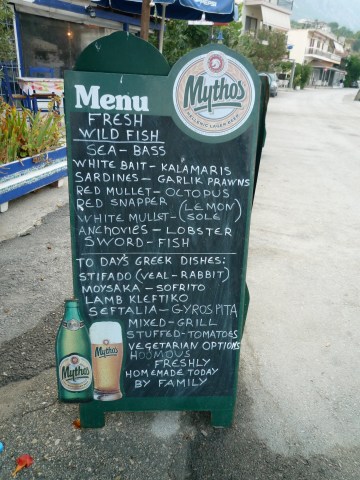 Menu
Mythos
HELLENIC LAGER BEER
FRESH
WILD FISH
SEA - BASS
WHITE BAIT - KALAMARIS
SARDINES - GARLIK PRAWNS
RED MULLET - OCTOPUS
RED SNAPPER (LEMON)
WHITE MULLET - (SOLE)
ANCHOVIES - LOBSTER
SWORD - FISH
TO DAY'S GREEK DISHES:
STIFADO (VEAL - RABBIT)
MOYSAKA - SOFRITO
LAMB KLEFTIKO
SEFTALIA - GYROS PITA
MIXED - GRILL
STUFFED - TOMATOES
VEGETARIAN OPTIONS
HOUMOUS
FRESHLY
HOMEMADE TODAY
BY FAMILY
Mythos
Mythos